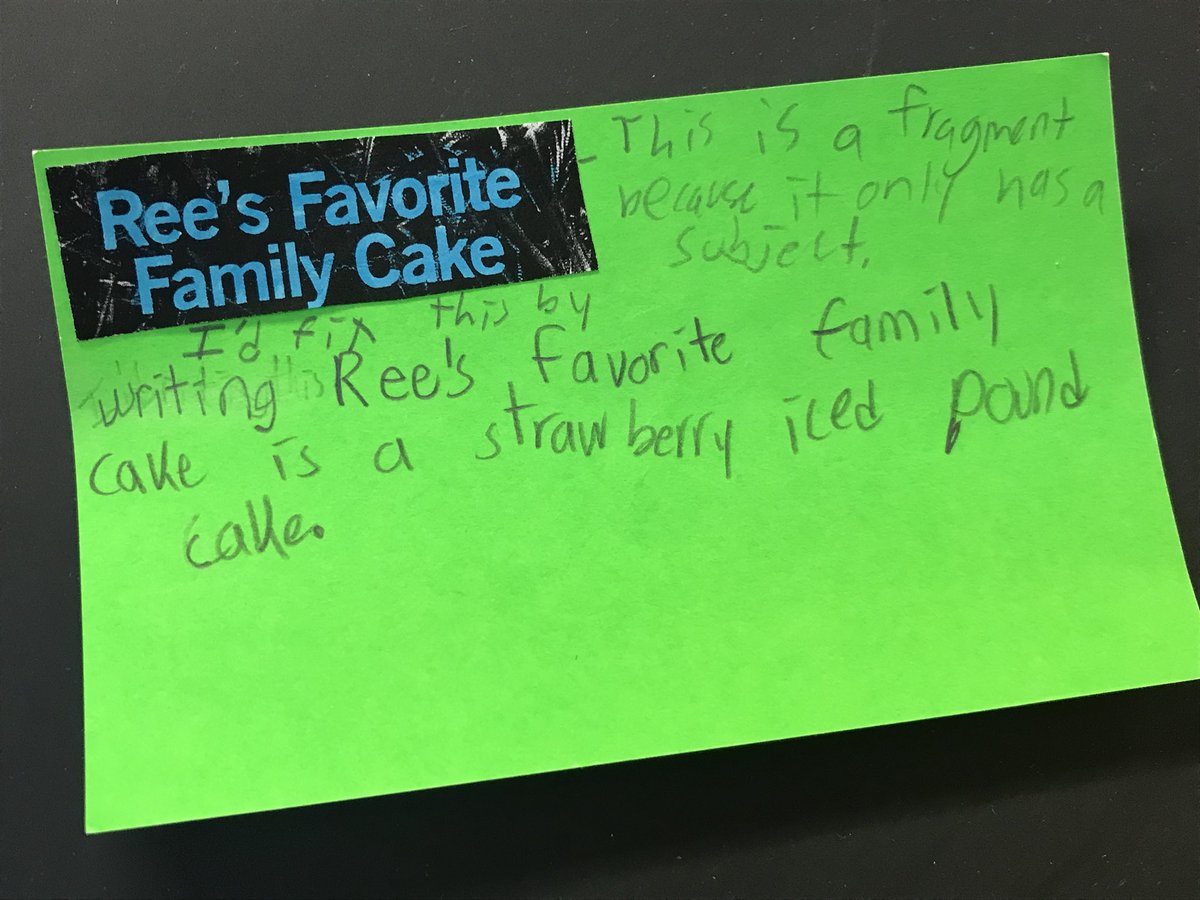 Ree's Favorite
Family Cake
- This is a fragment
because it only has a
subject.
I'd fix this by
writting Ree's favorite family
cake is a strawberry iced pound
cake.